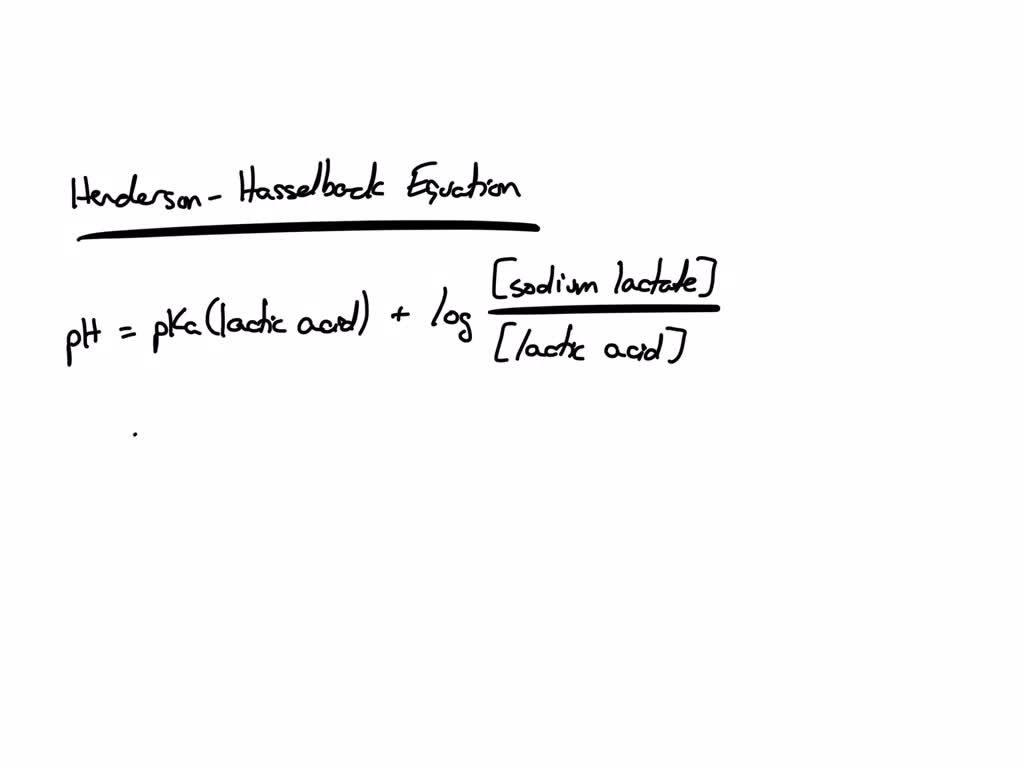 Henderson - Hasselback Equation
pH = pKa (lactic acid) + log [sodium lactate] / [lactic acid]